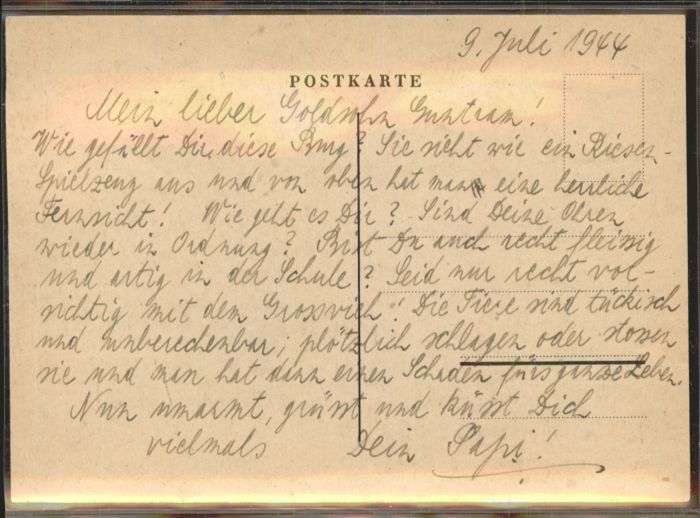 9. Juli 1944
POSTKARTE
Mein lieber Goldsohn Guntram!
Wie gefällt Dir diese Burg? Sie sieht wie ein Riesen-
Spielzeug aus und von oben hat man eine herrliche
Fernsicht! Wie geht es Dir? Sind Deine Ohren
wieder in Ordnung? Bist Du auch recht fleissig
und artig in der Schule? Seid nur recht vor-
sichtig mit dem Grossvieh! Die Tiere sind tückisch
und unberechenbar; plötzlich schlagen oder stossen
sie und man hat dann einen Schaden fürs ganze Leben.
Nun umarmt, grüsst und küsst Dich
vielmals Dein Papi!